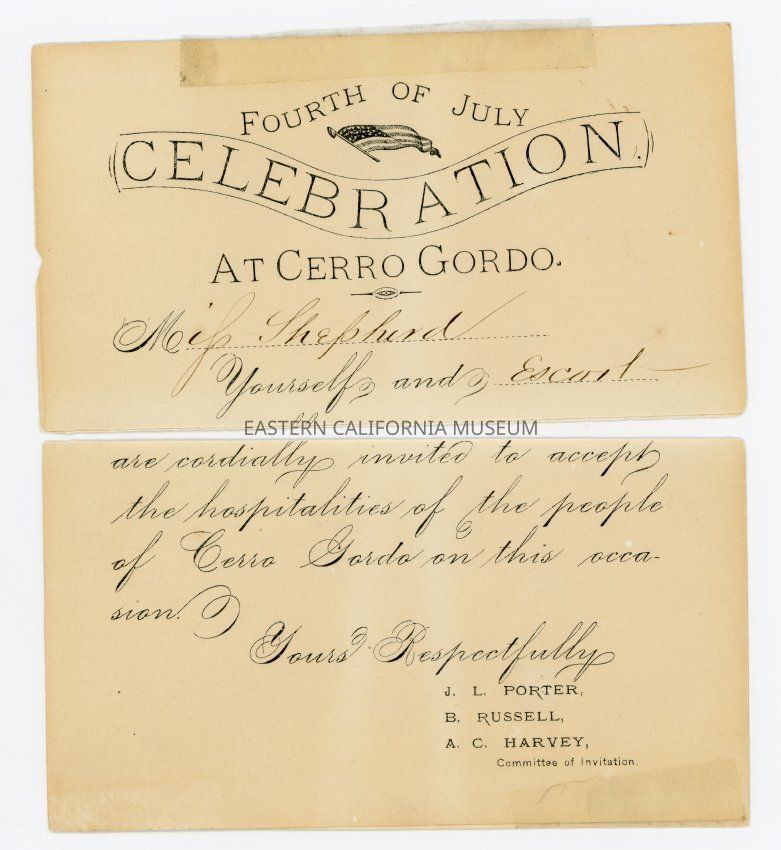 FOURTH OF JULY
CELEBRATION.
AT CERRO GORDO.
Miss Shepherd
Yourself and Escort
EASTERN CALIFORNIA MUSEUM
are cordially invited to accept
the hospitalities of the people
of Cerro Gordo on this occa-
sion.
Yours Respectfully
J. L. PORTER,
B. RUSSELL,
A. C. HARVEY,
Committee of Invitation.